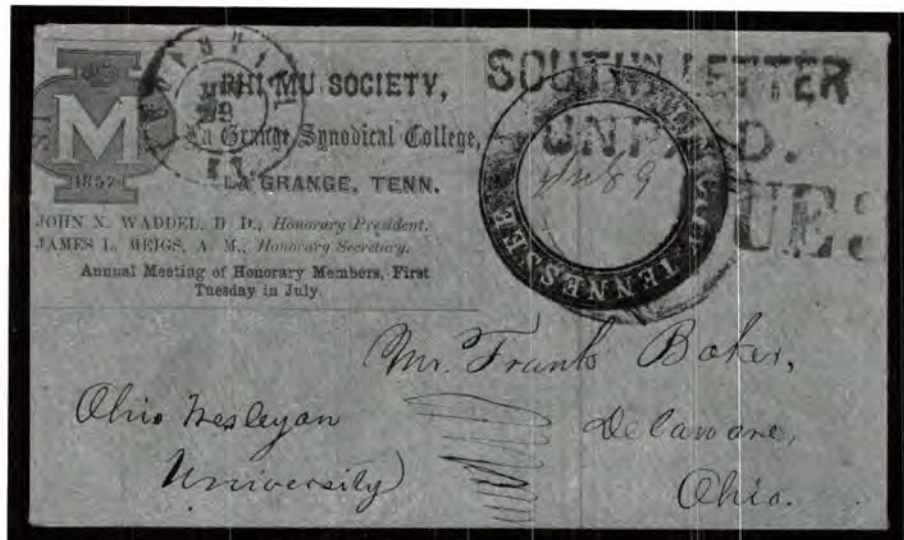 M
1857
PHI MU SOCIETY,
La Grange Synodical College,
LA GRANGE, TENN.
JOHN N. WADDEL, D D., Honorary President.
JAMES L. MEIGS, A M., Honorary Secretary.
Annual Meeting of Honorary Members, First
Tuesday in July
SOUTHN LETTER
UNPAID.
DUE 3
TENNESSEE
Mr. Frank Baker,
Delaware,
Ohio.
Ohio Wesleyan
University